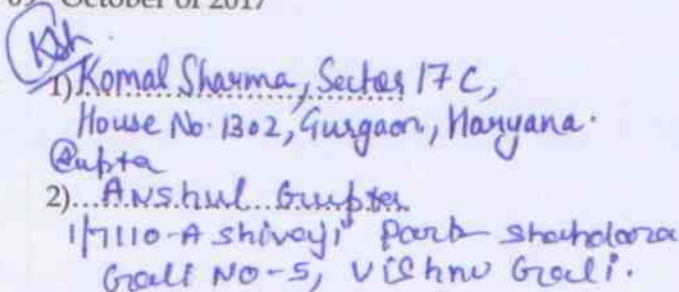 October of 2017
Ksh
1) Komal Sharma, Sector 17 C,
House No. 1302, Gurgaon, Haryana.
Gupta
2)...Anshul Gupta
1/7110-A shivaji Park shahdara
Gali No-5, Vishnu Gali.